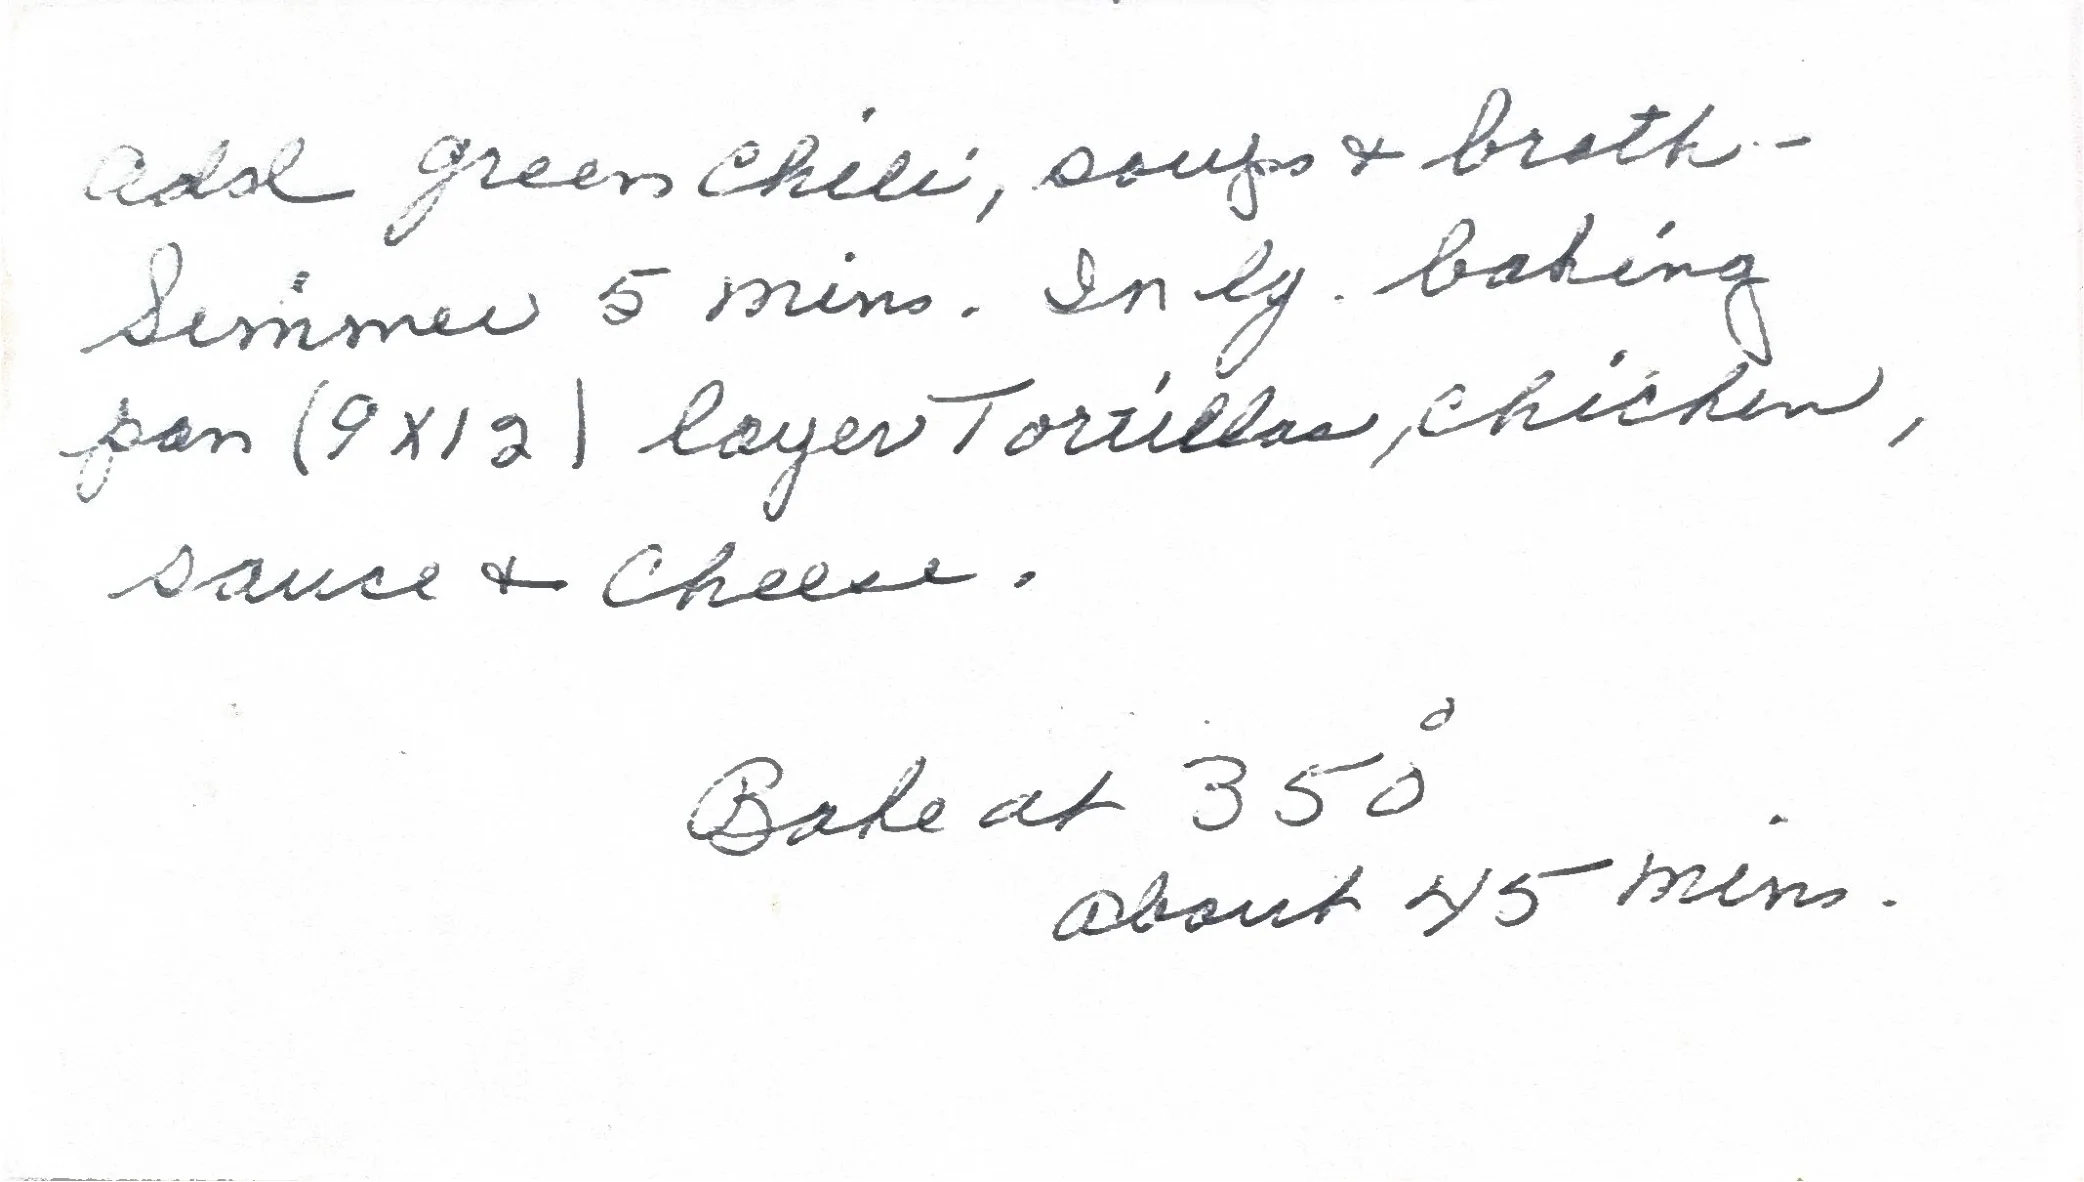 add green chili, soups & broth -
Simmer 5 mins. In lg. baking
pan (9x12) layer Tortillas, chicken,
sauce & Cheese.
Bake at 350°
about 45 mins.